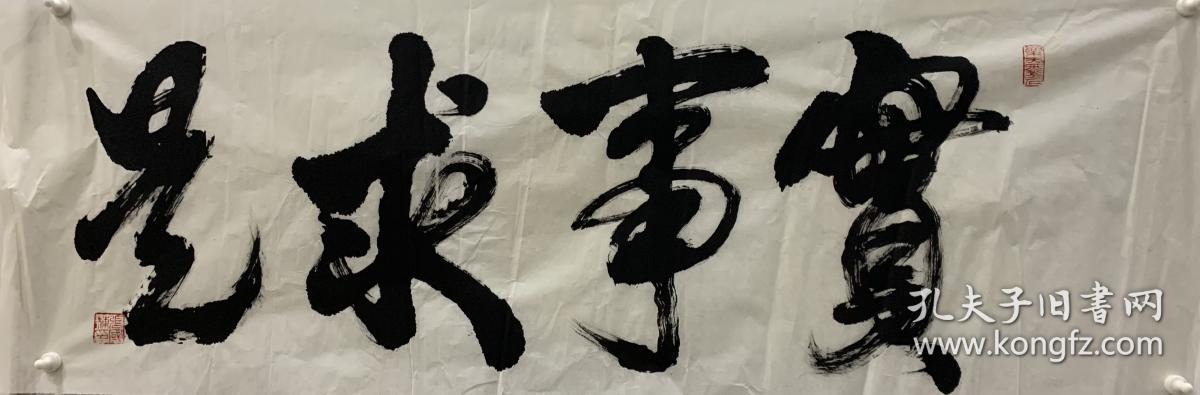 實事求是
孔夫子旧書网
www.kongfz.com